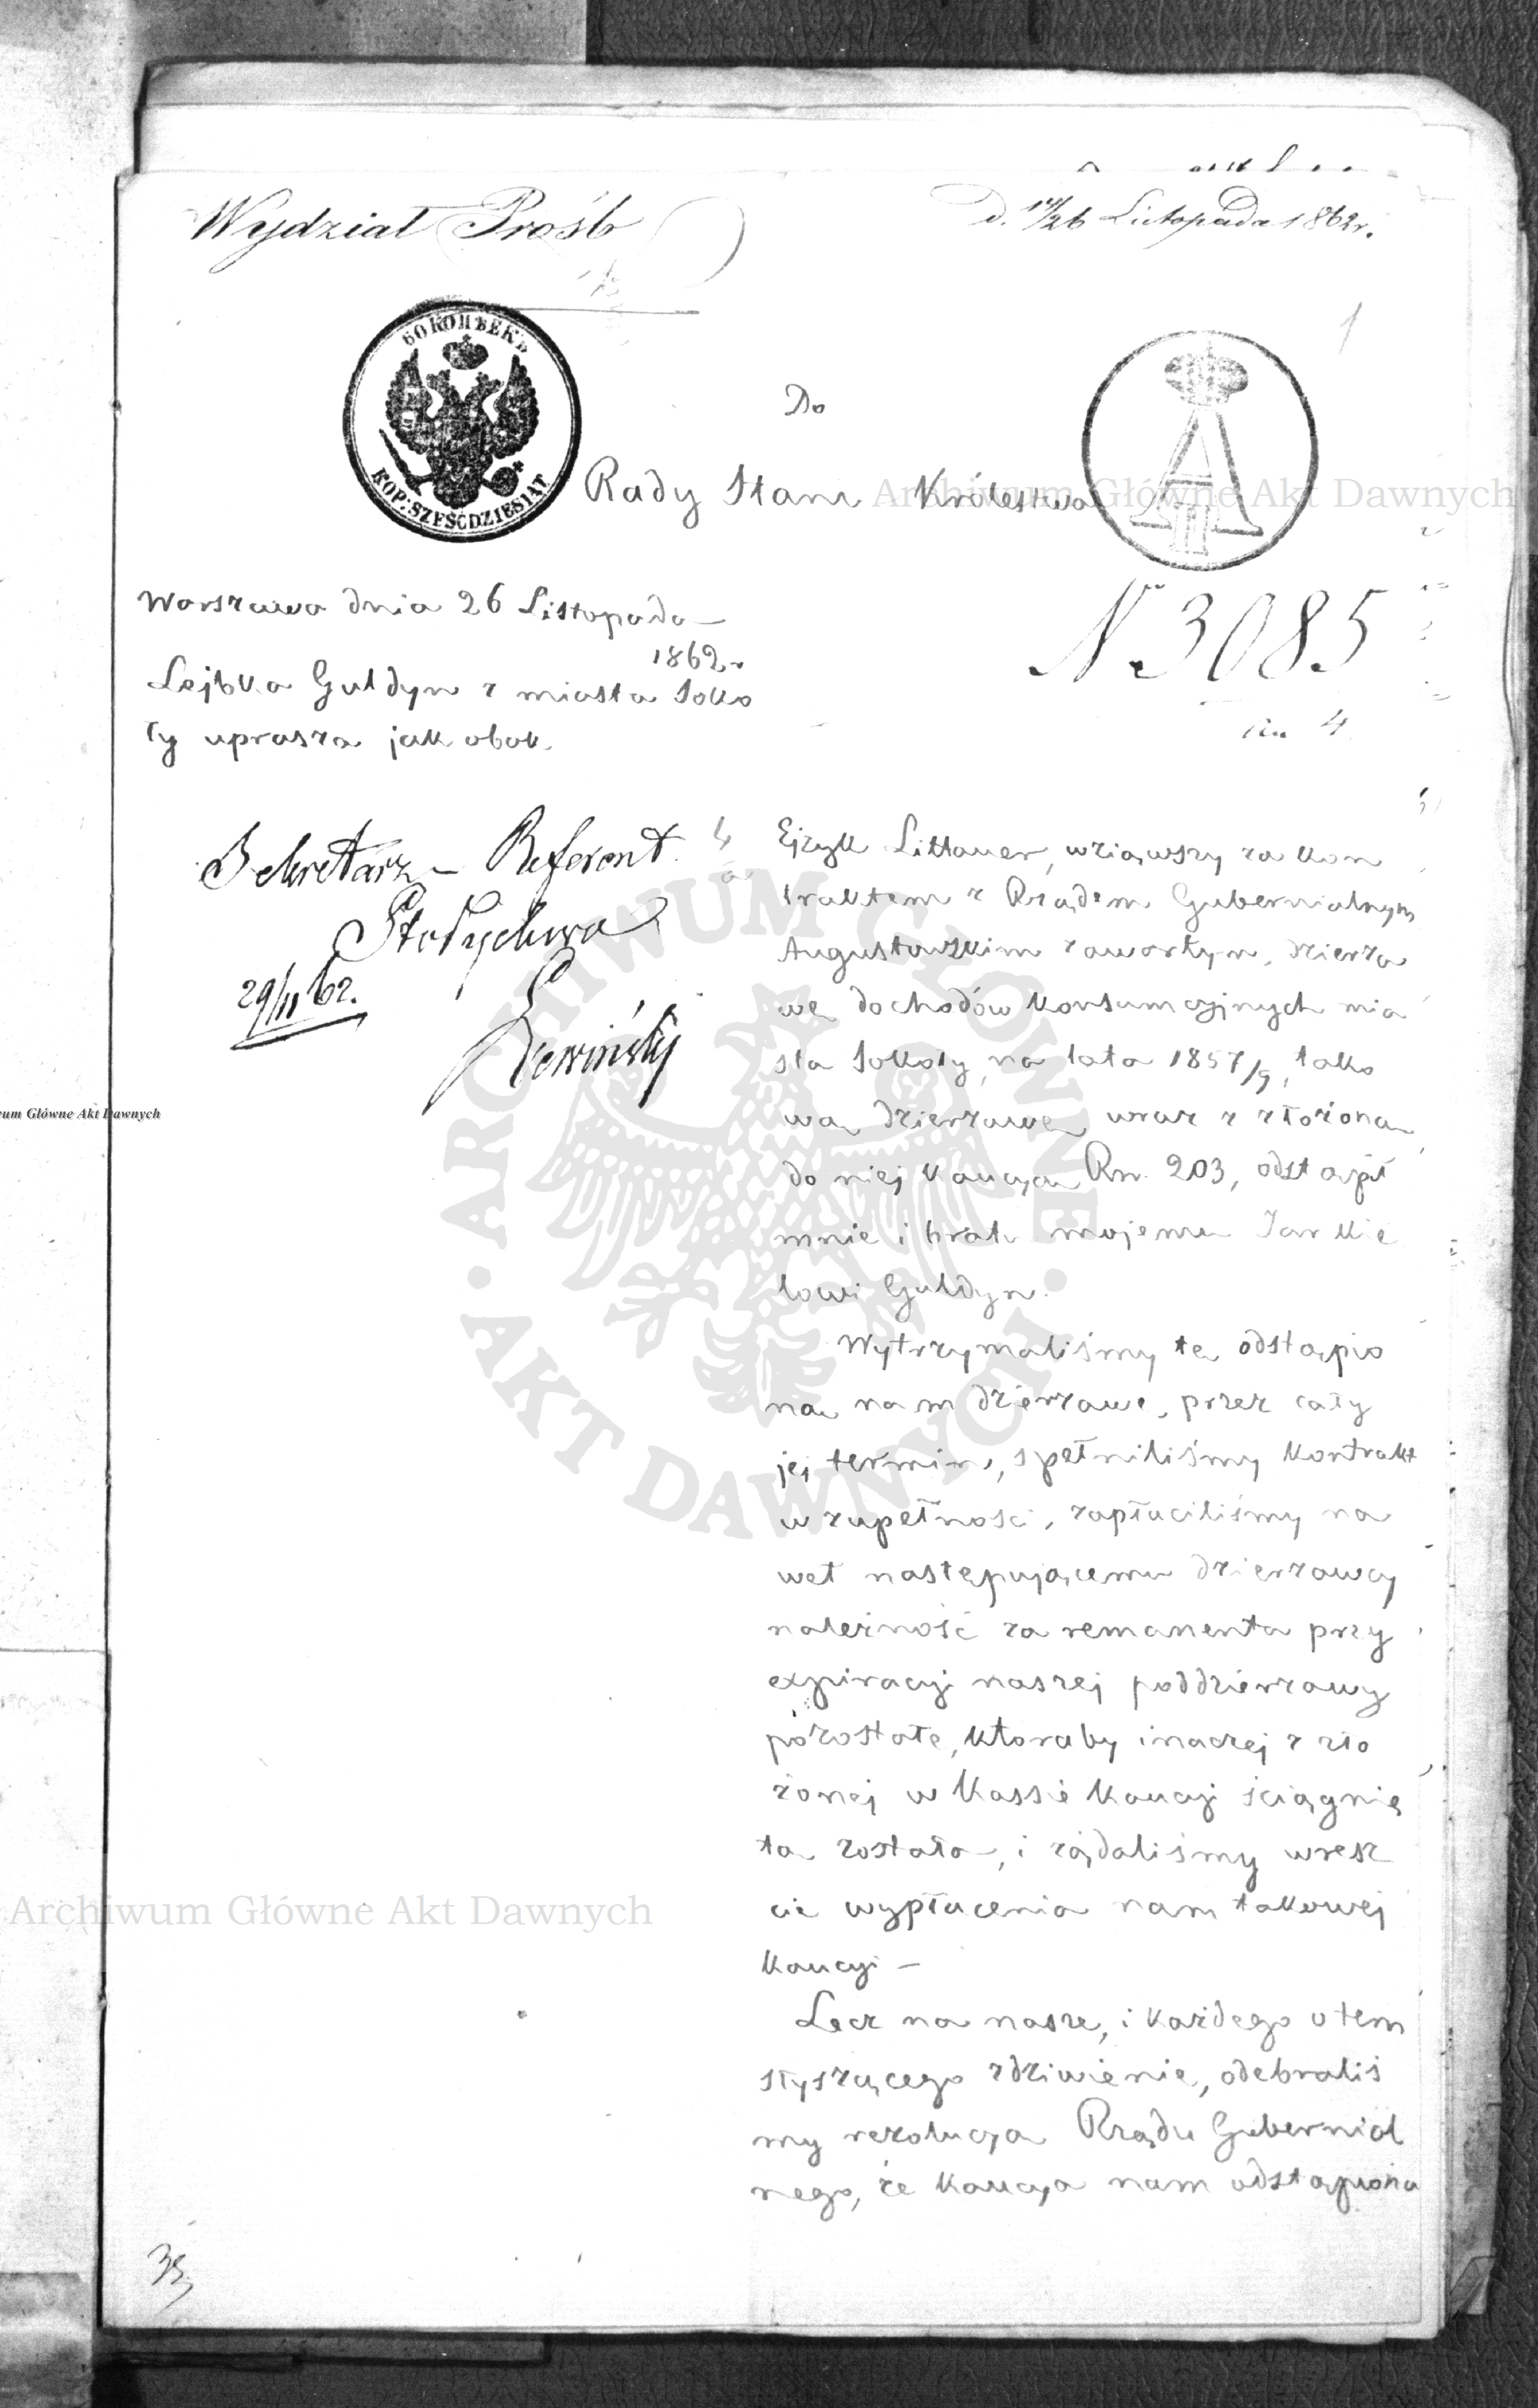 Wydział Próśb
D. 14/26 Listopada 1862 r.
1
60 КОПѢЕКЪ
KOP: SZEŚĆDZIESIĄT
Do
Rady Stanu Królestwa
Archiwum Główne Akt Dawnych
Warszawa dnia 26 Listopada
1862 r
Lejbka Guldyn z miasta Soko
ły uprasza jak obok.
N 3085
4
Sekretarz – Referent
29/11 62.
Lewiński
Ejzyk Littauer, wziąwszy za kon
traktem z Rządem Gubernialnym
Augustowskim zawartym, dzierża
wę dochodów konsumcyjnych mia
sta Sokoły, na lata 1857/9, tako
wą dzierzawę wraz z złożoną
do niej kaucyą Rsr. 203, odstąpił
mnie i bratu mojemu Jankie
lowi Guldyn.
Wytrzymaliśmy tę odstąpio
ną nam dzierzawę, przez cały
jej termin, spełniliśmy kontrakt
w zupełności, zapłaciliśmy na
wet następującemu dzierzawcy
należność za remanenta przy
expiracyi naszej poddzierzawy
pózostałe, któraby inaczej z zło
żonej w Kassie kaucyi ściągnię
ta została, i żądaliśmy wresz
cie wypłacenia nam takowej
kaucyi –
Lecz na nasze, i każdego o tem
słyszącego zdziwienie, odebraliś
my rezolucyą Rządu Gubernial
nego, że kaucya nam odstąpiona
um Główne Akt Dawnych
ARCHIWUM GŁÓWNE · AKT DAWNYCH ·
Archiwum Główne Akt Dawnych